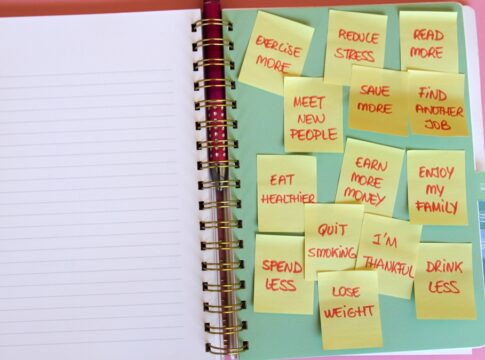 EXERCISE
MORE
REDUCE
STRESS
READ
MORE
MEET
NEW
PEOPLE
SAVE
MORE
FIND
ANOTHER
JOB
EAT
HEALTHIER
EARN
MORE
MONEY
ENJOY
MY
FAMILY
QUIT
SMOKING
I'M
THANKFUL
SPEND
LESS
DRINK
LESS
LOSE
WEIGHT